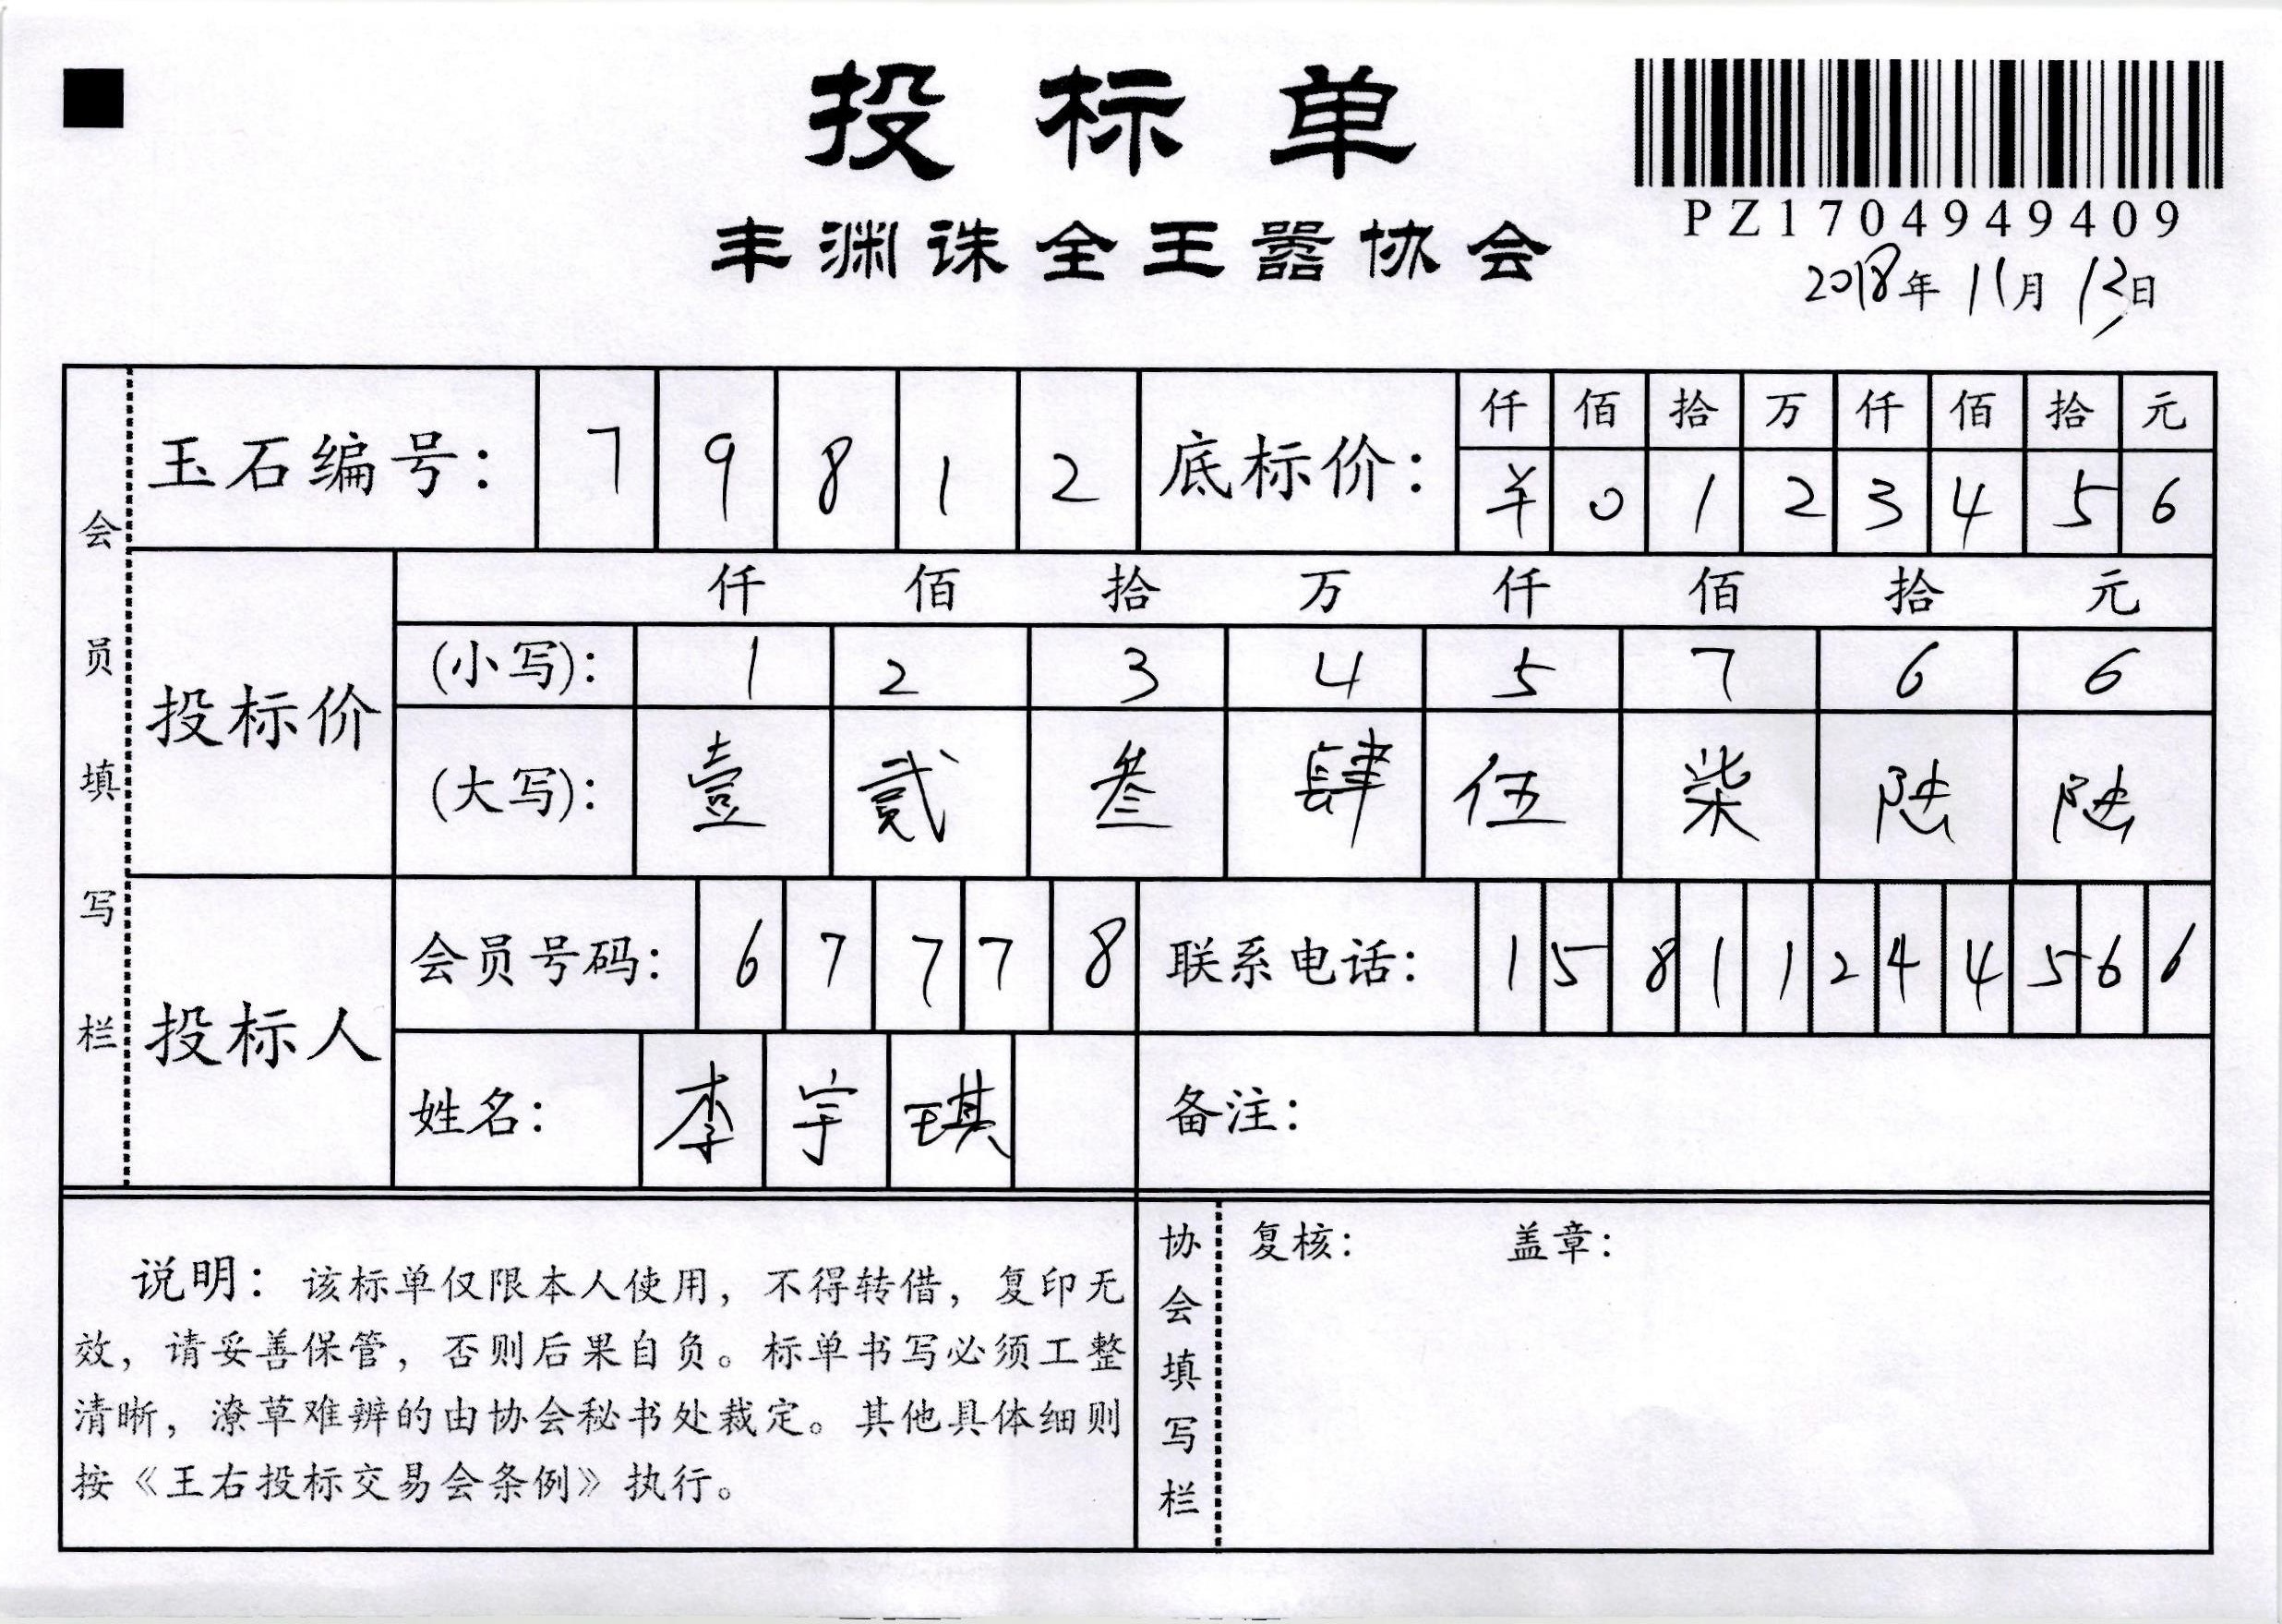 投标单
丰渊诛全王器协会
PZ1704949409
2018年11月13日
会员填写栏
玉石编号: 7 9 8 1 2
底标价:
仟 佰 拾 万 仟 佰 拾 元
¥ 0 1 2 3 4 5 6
投标价
仟 佰 拾 万 仟 佰 拾 元
(小写): 1 2 3 4 5 7 6 6
(大写): 壹 贰 叁 肆 伍 柒 陆 陆
投标人
会员号码: 6 7 7 7 8
联系电话: 1 5 8 1 1 2 4 4 5 6 6
姓名: 李 宇 琪
备注:
说明：该标单仅限本人使用，不得转借，复印无
效，请妥善保管，否则后果自负。标单书写必须工整
清晰，潦草难辨的由协会秘书处裁定。其他具体细则
按《王右投标交易会条例》执行。
协会填写栏
复核: 盖章: